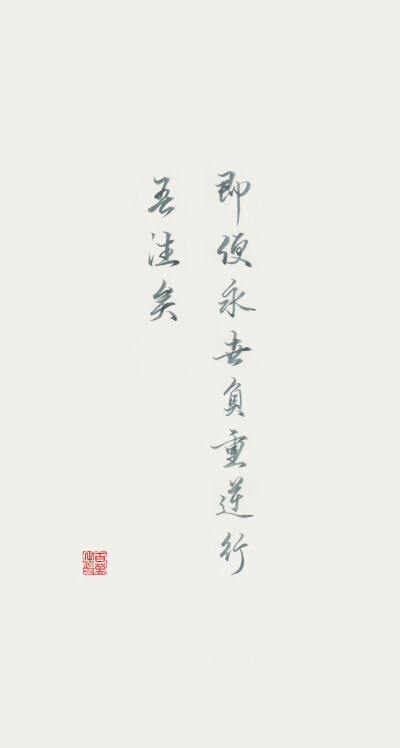 即便永世负重逆行
吾往矣